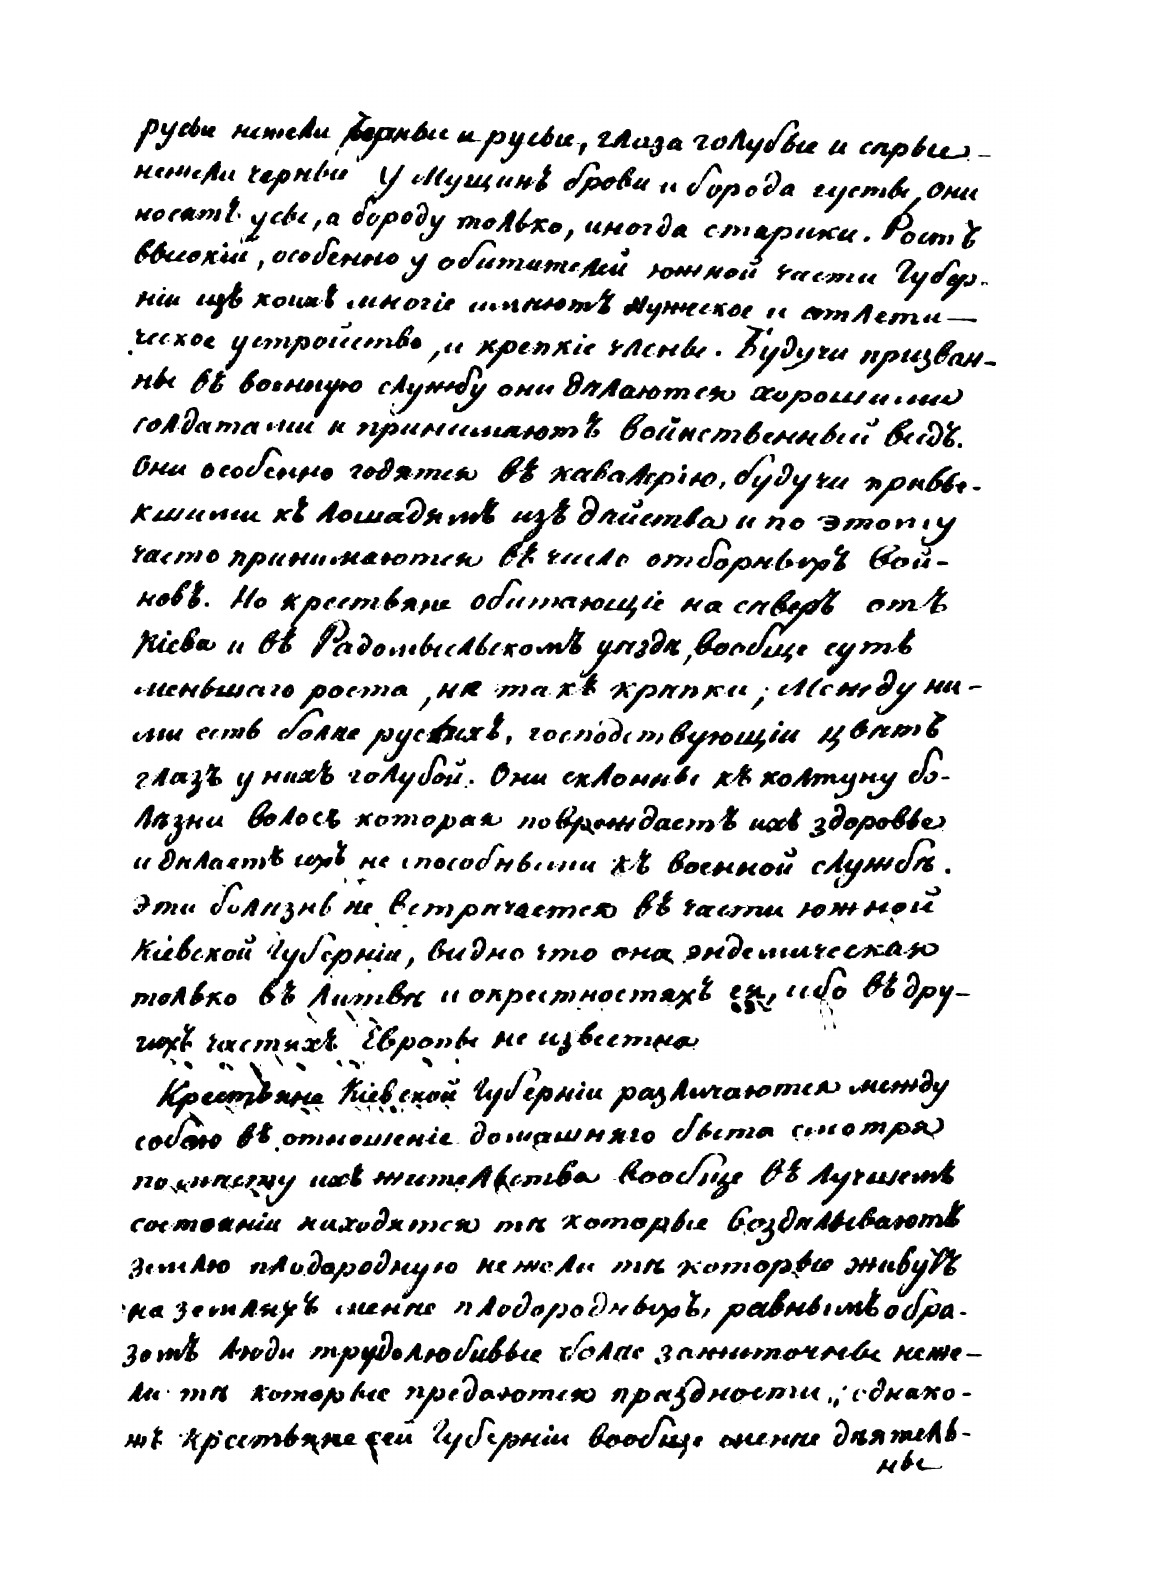 русыи нежели черныи и русыи, глаза голубые и серые –
нежели черныи У Мущинъ брови и борода густы, они
носятъ усы, а бороду только, иногда старики. Ростъ
высокій, особенно у обитателей южной части Губер-
ніи изъ коихъ многіе имѣютъ Мужское и атлети—
ческое устройство, и крепкіе члены. Будучи призван-
ны въ военную службу они дѣлаются хорошими
солдатами и принимаютъ войнственный видъ.
Они особенно годятся въ кавалерію, будучи привы-
кшими къ лошадямъ изъ дѣйства и по этому
часто принимаются въ число отборныхъ Вой-
новъ. Но крестьяне обитающіе на сѣверъ отъ
Кіева и въ Радомысльскомъ уѣздѣ, вообще суть
меньшаго роста, не такъ крѣпки; Между ни-
ми есть болѣе русыхъ, господствующіи цвѣтъ
глазъ у нихъ голубой. Они склонны къ колтуну бо-
лѣзни волосъ которая повреждаетъ ихъ здоровье
и дѣлаетъ ихъ не способными къ военной службѣ.
Эти болѣзнь не встрѣчается въ части южной
Кіевской Губерніи, видно что она эндемическая
только въ Литвѣ и окрестностяхъ ея, ибо въ дру-
гихъ частяхъ Европы не известна
Крестьяне Кіевской Губерніи различаются между
собою въ отношеніе домашняго быта смотря
по мѣсту ихъ жительства вообще въ лучшемъ
состояніи находятся тѣ которые воздѣлываютъ
землю плодородную нежели тѣ которые живутъ
на земляхъ менѣе плодородныхъ, равнымъ обра-
зомъ люди трудолюбивые болѣе зажиточны неже-
ли тѣ которые предаются праздности; однако-
жъ крестьяне сей Губерніи вообще менѣе дѣятель-
ны